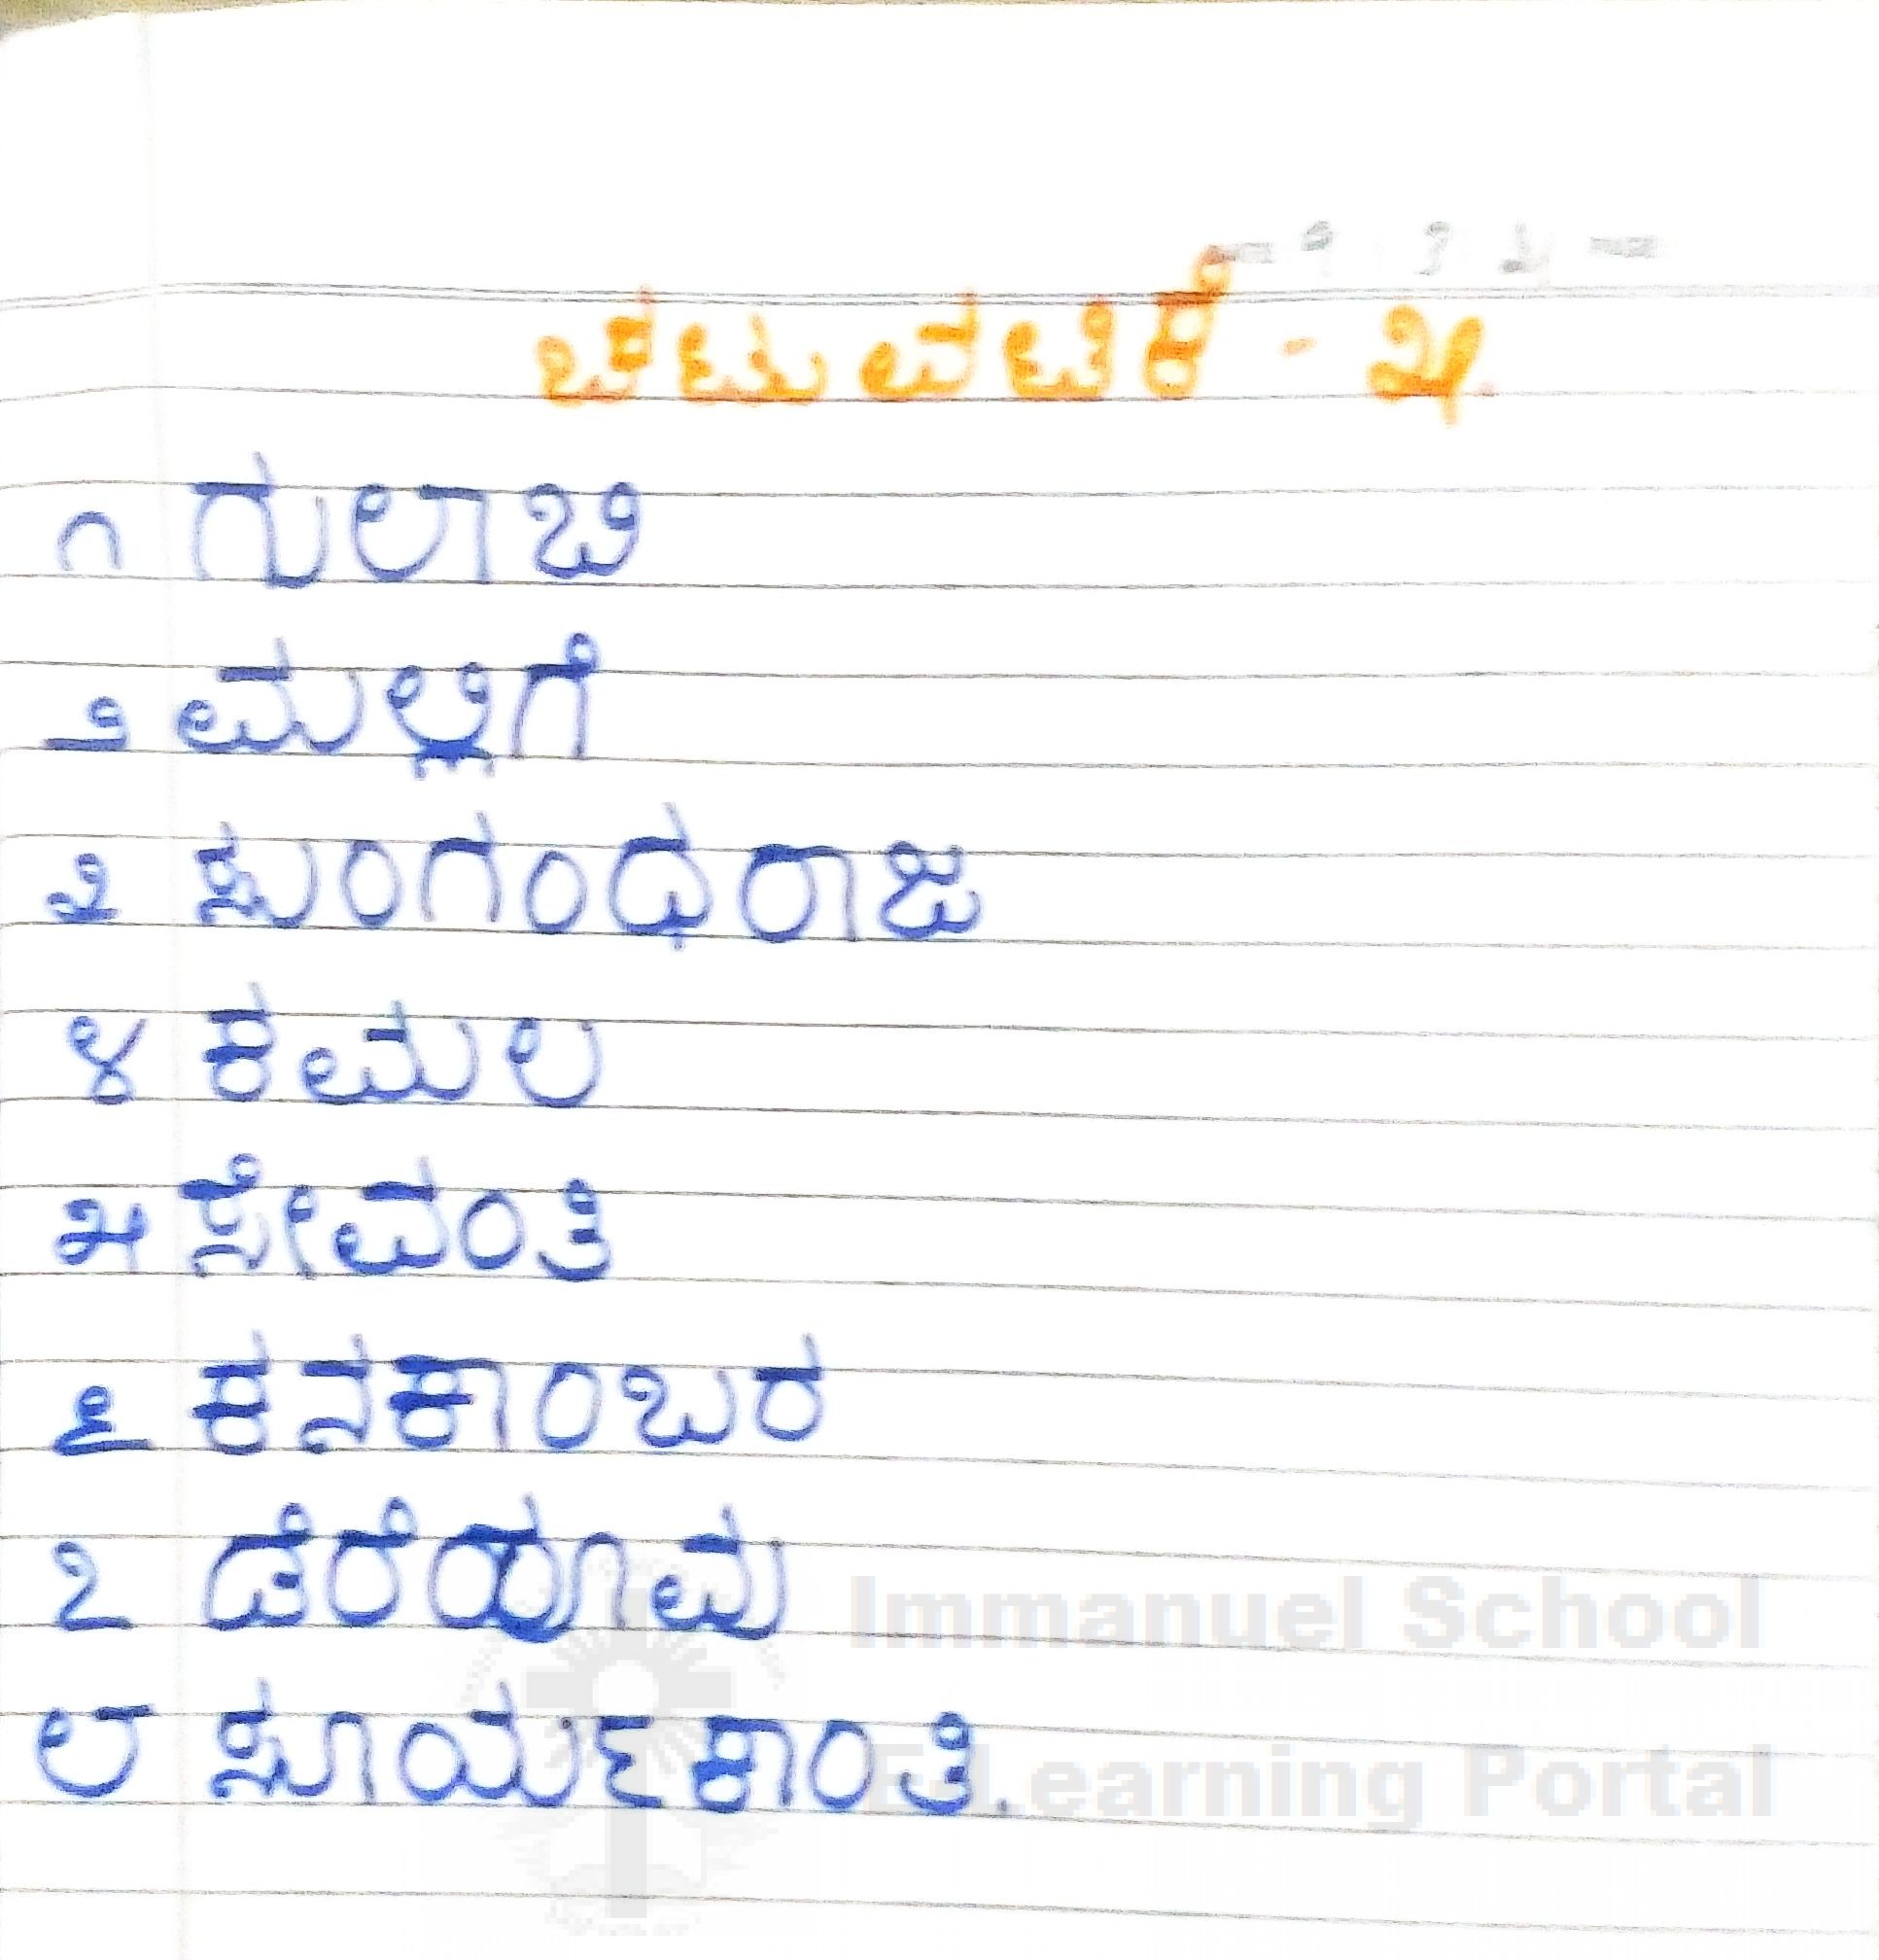 ಚಟುವಟಿಕೆ - ೫.
೧ ಗುಲಾಬಿ
೨ ಮಲ್ಲಿಗೆ
೩ ಸುಂಗಂಧರಾಜ
೪ ಕಮಲ
೫ ಸೇವಂತಿ
೬ ಕನಕಾಂಬರ
೭ ಡೆರೆಹೂವು
೮ ಸೂರ್ಯಕಾಂತಿ.
Immanuel School
E-Learning Portal